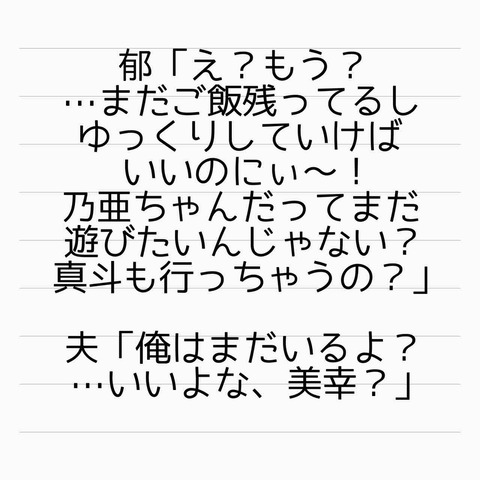 郁「え？もう？
…まだご飯残ってるし
ゆっくりしていけば
いいのにぃ〜！
乃亜ちゃんだってまだ
遊びたいんじゃない？
真斗も行っちゃうの？」
夫「俺はまだいるよ？
…いいよな、美幸？」